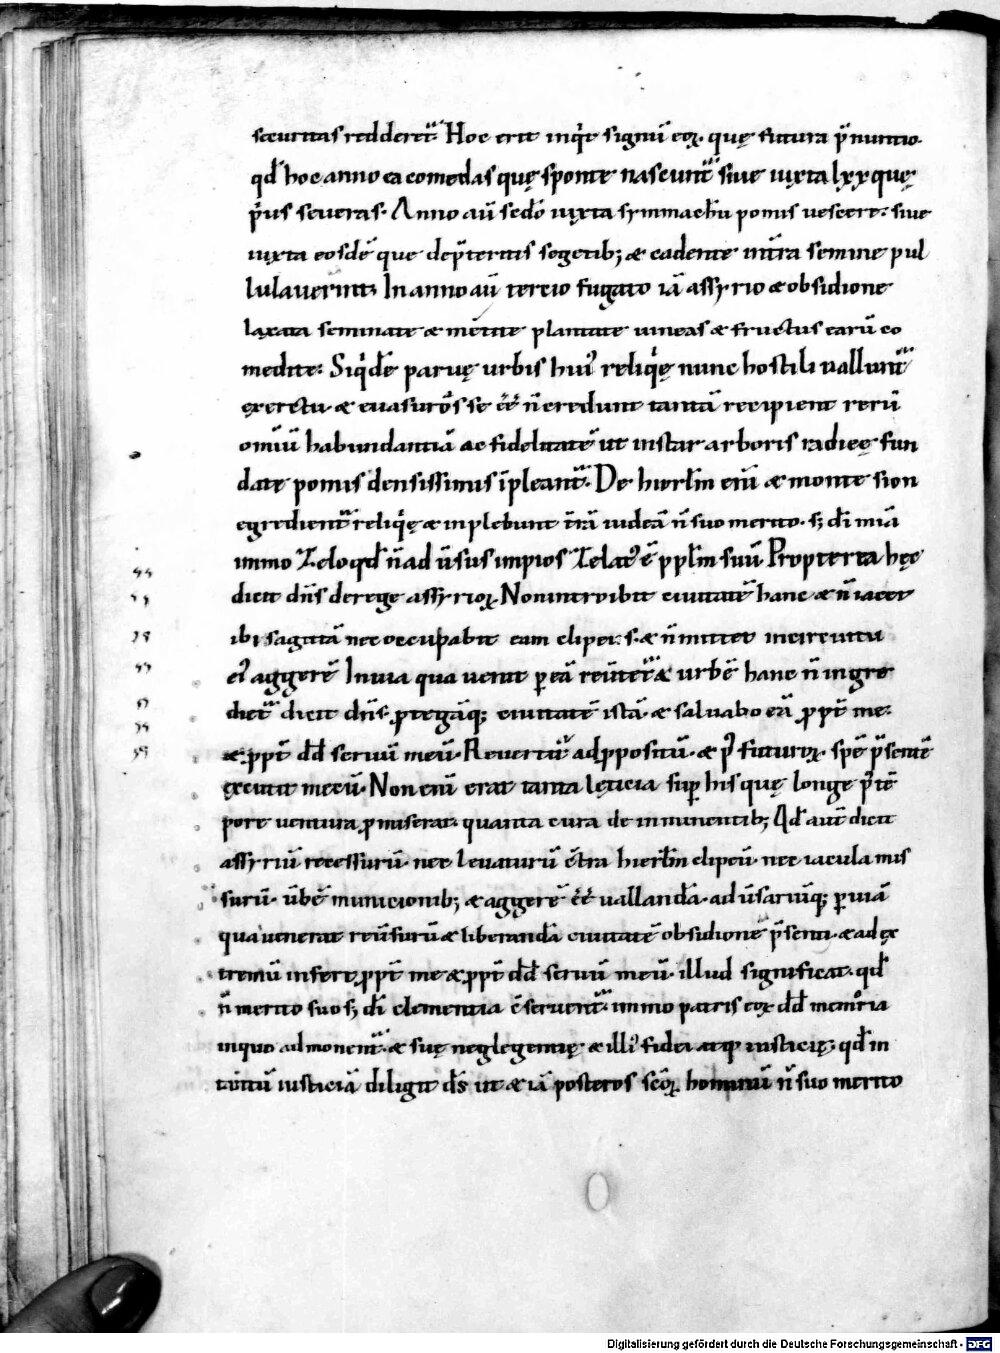 securitas redderet᷑. Hoc erit inq̇t signū eoꝝ. quę futura p̄nuntio.
qd̄ hoc anno ea comedas quę sponte nascunt᷑ siue iuxta lxx quę
p̓us seueras. Anno aū sedō iuxta symmachū pomis uescere. siue
iuxta eosdē que de p̄teritis segetib; & cadente intͣra semine pul
lulauerint. In anno aū tercio fugato iā assyrio & obsidione
laxata seminate & metite plantate uineas & fructus earū co
medite. Siq̇dē paruę urbis hui᷒ reliq̇ę nunc hostili uallunt᷑
exercitu & euasuros se ēē n̄ credunt tantā recipient rerū
omīū habundantiā ac fidelitatē ut instar arboris radice fun
date pomis densissimis īpleant᷑. De hierlm̄ enī & monte sion
egredient᷑ reliq̇ę & inplebunt trā̄ iudeā n̄ suo merito. s; dī miā
immo zelo qd̄ n̄ aduersus impios zelat᷒ ē pplm̄ suū. Propterea hęc
dicit dn̄s de rege assyrioꝝ. Non introibit ciuitatē hanc & n̄ iacet
ibi sagittā nec occupabit eam clipei s. & n̄ mittet in circuitu
ei᷒ aggerē. In uia qua uenit p eā reuertet᷑ & urbē hanc n̄ ingre
diet᷑ dicit dn̄s. ptegāq; ciuitatē istā & saluabo eā ppt̄ me.
& ppt̄ dd̄ seruū meū. Reuertit᷑ ad ppositū. & p᷒ futuroꝝ spē p̄sentē
excutit metū. Non enī erat tanta lęticia sup his quę longe p᷒ tē
pore uentura pmiserat. quanta cura de inminentib; Qd̄ autē dicit
assyriū recessurū. nec leuaturū cōtra hierlm̄ clipeū. nec iacula mis
surū. urbē municionib; & aggerē ēē uallandā. ad uersarīūq; p uiā
qua uenerat reuersurū & liberandā ciuitatē obsidione p̄senti. & ad ex
tremū infert ppt̄ me & ppt̄ dd̄ seruū meū. illud significat. qd̄
n̄ merito suo s; dī clementia cōseruent᷑. immo patris eoꝝ dd̄ memoria
in quo admonent᷑ & suę neglegentię & illi᷒ fidei atq; iusticię. qd̄ in
tantū iusticiā diligit ds̄ ut & iā posteros scōꝝ hominū n̄ suo merito
Digitalisierung gefördert durch die Deutsche Forschungsgemeinschaft - DFG